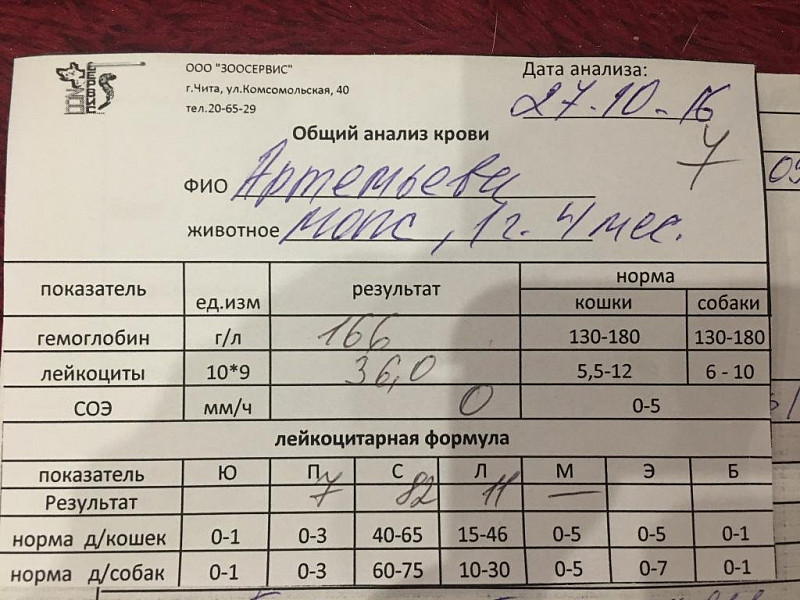 ЗООСЕРВИС
ООО "ЗООСЕРВИС"
г.Чита, ул.Комсомольская, 40
тел.20-65-29
Дата анализа:
27-10-16
7
Общий анализ крови
ФИО Артемьева
животное мопс, 1 г. 4 мес.
показатель ед.изм результат норма
кошки собаки
гемоглобин г/л 166 130-180 130-180
лейкоциты 10*9 36,0 5,5-12 6 - 10
СОЭ мм/ч 0 0-5
лейкоцитарная формула
показатель Ю П С Л М Э Б
Результат 7 82 11 —
норма д/кошек 0-1 0-3 40-65 15-46 0-5 0-5 0-1
норма д/собак 0-1 0-3 60-75 10-30 0-5 0-7 0-1